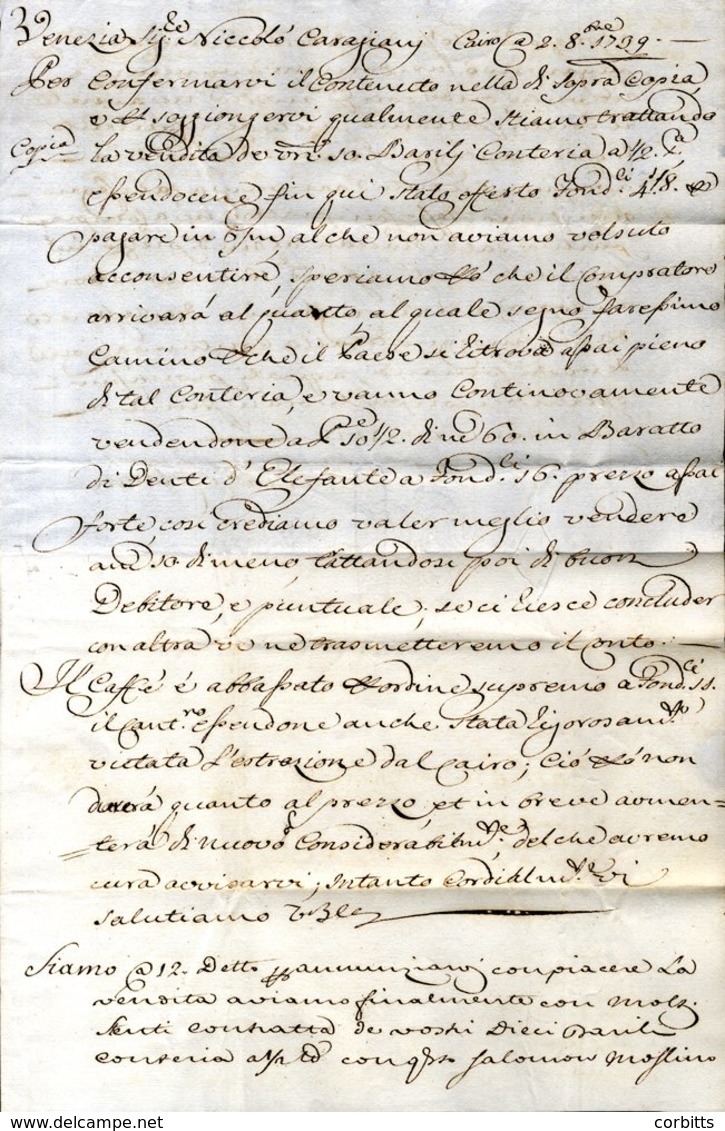 Venezia Sig.re Niccoló Caragianj Cairo @ 2. 8.bre 1799.
Per Confermarvi il Contenuto nella di sopra Copia,
e soggiongervi qualmente stiamo trattando
Copia
la vendita de vri. 10. Barilj Conteria a 1/2
essendocene fin qui stato offerto Fond.li 48.
pagare in al che non aviamo volsuto
acconsentire, speriamo ché il Compratore
arrivará al quanto, al quale segno faressimo
Camino che il Paese si ritrova assai pieno
di tal Conteria, e vanno Continovamente
vendendone a 10 1/2. di 60. in Baratto
di Denti d'Elefante a Fond.li 16. prezzo assai
forte, con crediamo valer meglio vendere
10. di meno trattandosi poi di buon
Debitore, e puntuale; se ci riesce concluder
con altra ve ne trasmetteremo il Conto.
Il Caffé é abbassato ordine supremo a Fond.li
il Cant.ro essendone anche stata rigorosam.te
vietata l'estrazione dal Cairo; Ció non
durerá quanto al prezzo, et in breve aumen=
=terá di nuovo Considerabilm.te, del che avremo
cura avvisarvi; Intanto Cordialm.te vi
salutiamo
Siamo @ 12. Detto annunziarvj con piacere La
vendita aviamo finalmente con Molt.
Stenti contratta de vostri Dieci Barili
Conteria con Salomon Mosseno